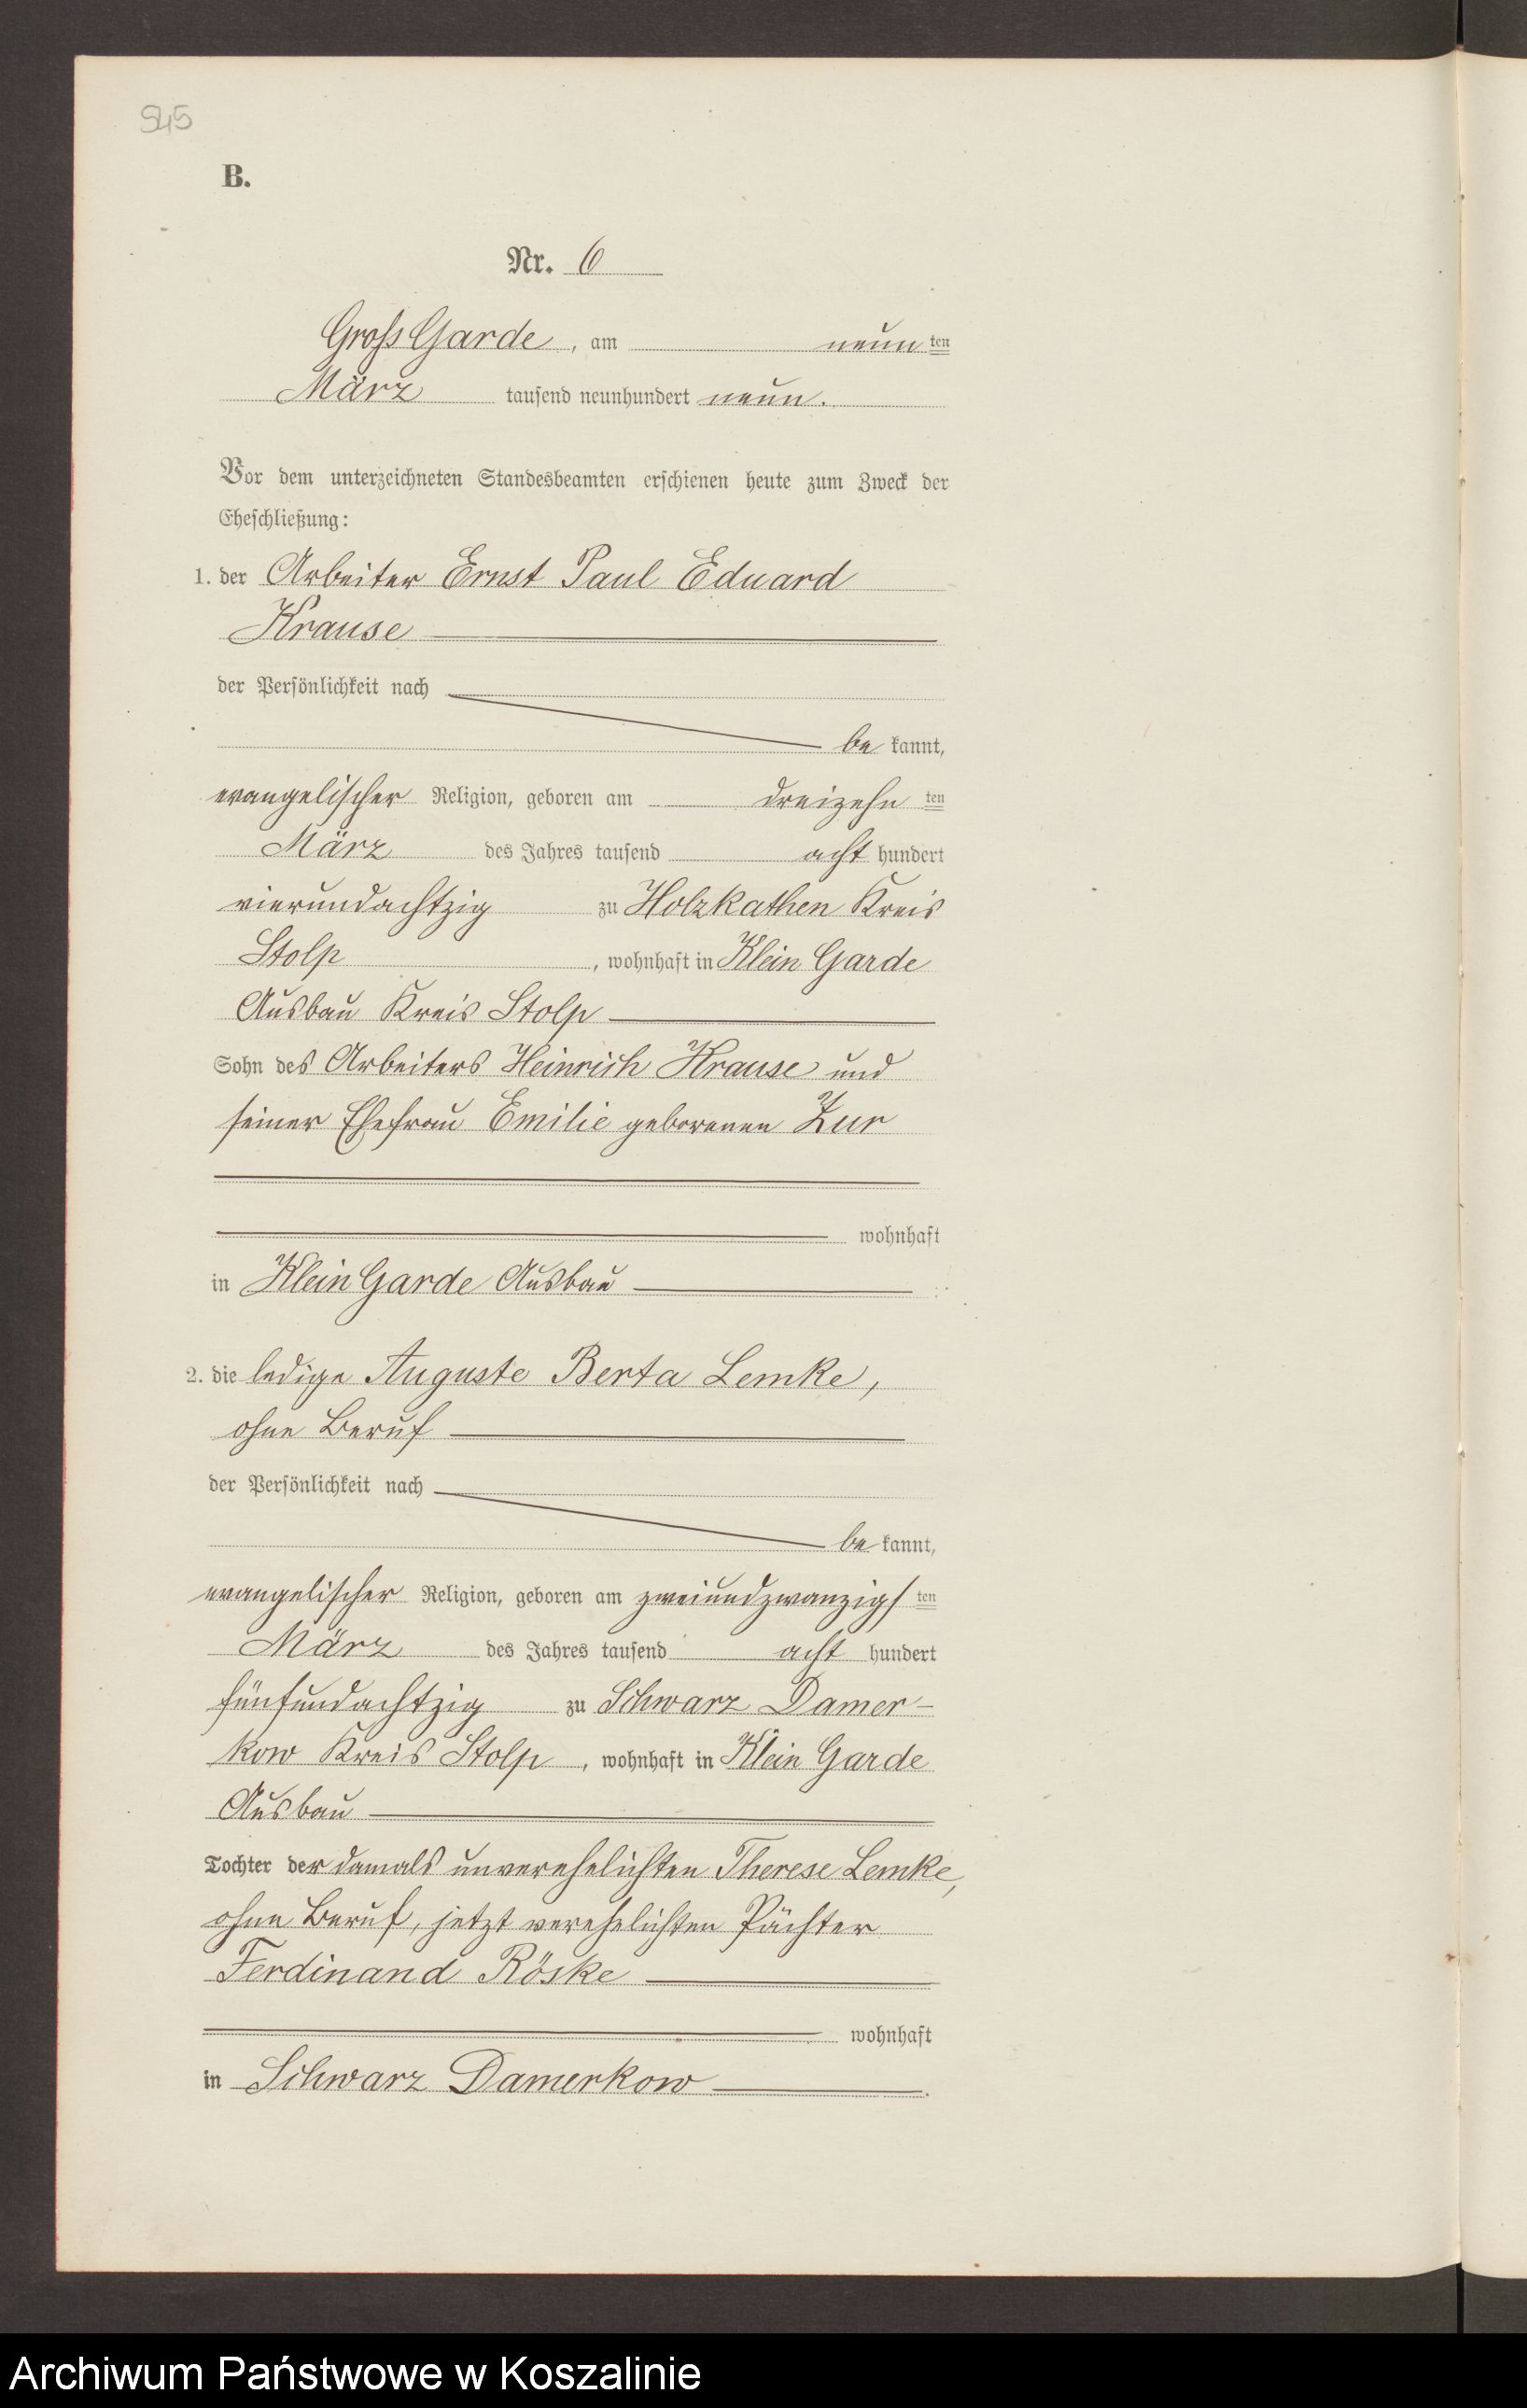 545
B.
Nr. 6
Gross Garde, am neun ten
März tausend neunhundert neun.
Vor dem unterzeichneten Standesbeamten erschienen heute zum Zweck der
Eheschließung:
1. der Arbeiter Ernst Paul Eduard
Krause
der Persönlichkeit nach
be kannt,
evangelischer Religion, geboren am dreizehn ten
März des Jahres tausend acht hundert
vierundachtzig zu Holzkathen Kreis
Stolp, wohnhaft in Klein Garde
Ausbau Kreis Stolp
Sohn des Arbeiters Heinrich Krause und
seiner Ehefrau Emilie geborenen Zur
wohnhaft
in Klein Garde Ausbau
2. die ledige Auguste Berta Lemke,
ohne Beruf
der Persönlichkeit nach
be kannt,
evangelischer Religion, geboren am zweiundzwanzigs ten
März des Jahres tausend acht hundert
fünfundachtzig zu Schwarz Damer-
kow Kreis Stolp, wohnhaft in Klein Garde
Ausbau
Tochter der damals unverehelichten Therese Lemke,
ohne Beruf, jetzt verehelichten Pächter
Ferdinand Röske
wohnhaft
in Schwarz Damerkow.
Archiwum Państwowe w Koszalinie